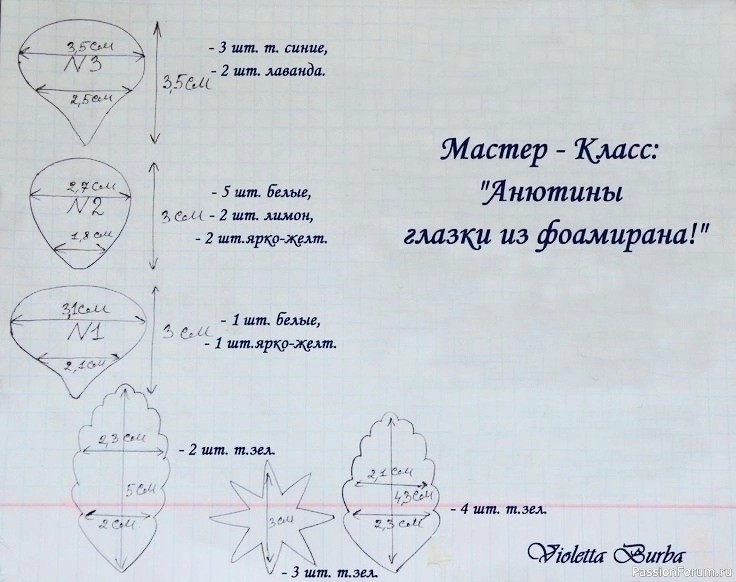 3,5см
N3
2,5см
3,5см
- 3 шт. т. синие,
- 2 шт. лаванда.
Мастер - Класс:
"Анютины
глазки из фоамирана!"
2,7см
N2
1,8см
3см
- 5 шт. белые,
- 2 шт. лимон,
- 2 шт.ярко-желт.
3,1см
N1
2,1см
3см
- 1 шт. белые,
- 1 шт.ярко-желт.
2,3см
5см
2см
- 2 шт. т.зел.
3см
- 3 шт. т.зел.
2,1см
4,3см
2,3см
- 4 шт. т.зел.
Violetta Burba
PassionForum.ru